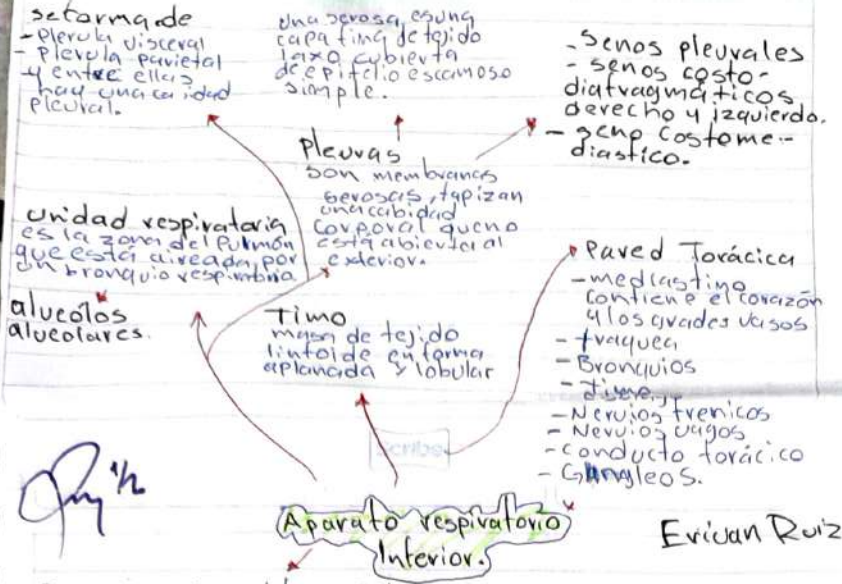 se forma de
- plerula visceral
- plerula parietal
y entre ellas
hay una cavidad
pleural.
una serosa, es una
capa fina de tejido
laxo cubierta
de epitelio escamoso
simple.
- Senos pleurales
- senos costo-
diafragmáticos
derecho y izquierdo.
- seno costome-
diastico.
pleuras
son membranas
serosas, tapizan
una cabidad
corporal que no
está abierta al
exterior.
unidad respiratoria
es la zona del Pulmón
que está aireada por
un bronquio respiratorio
alveólos
alveolares.
Timo
masa de tejido
linfoide en forma
aplanada y lobular
Pared Torácica
- mediastino
contiene el corazón
y los grades vasos
- traquea
- Bronquios
- timo
- Nervios frenicos
- Nervios vagos
- conducto torácico
- Gangleos.
Scribe
1/2
Aparato respiratorio
Inferior.
Erivan Ruiz